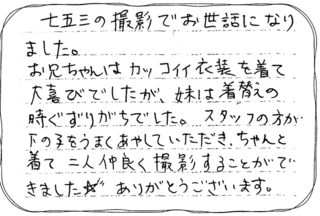 七五三の撮影でお世話になり
ました。
お兄ちゃんはカッコイイ衣装を着て
大喜びでしたが、妹は着替えの
時ぐずりがちでした。スタッフの方が
下の子をうまくあやしていただき、ちゃんと
着て二人仲良く撮影することがで
きました☆ ありがとうございます。